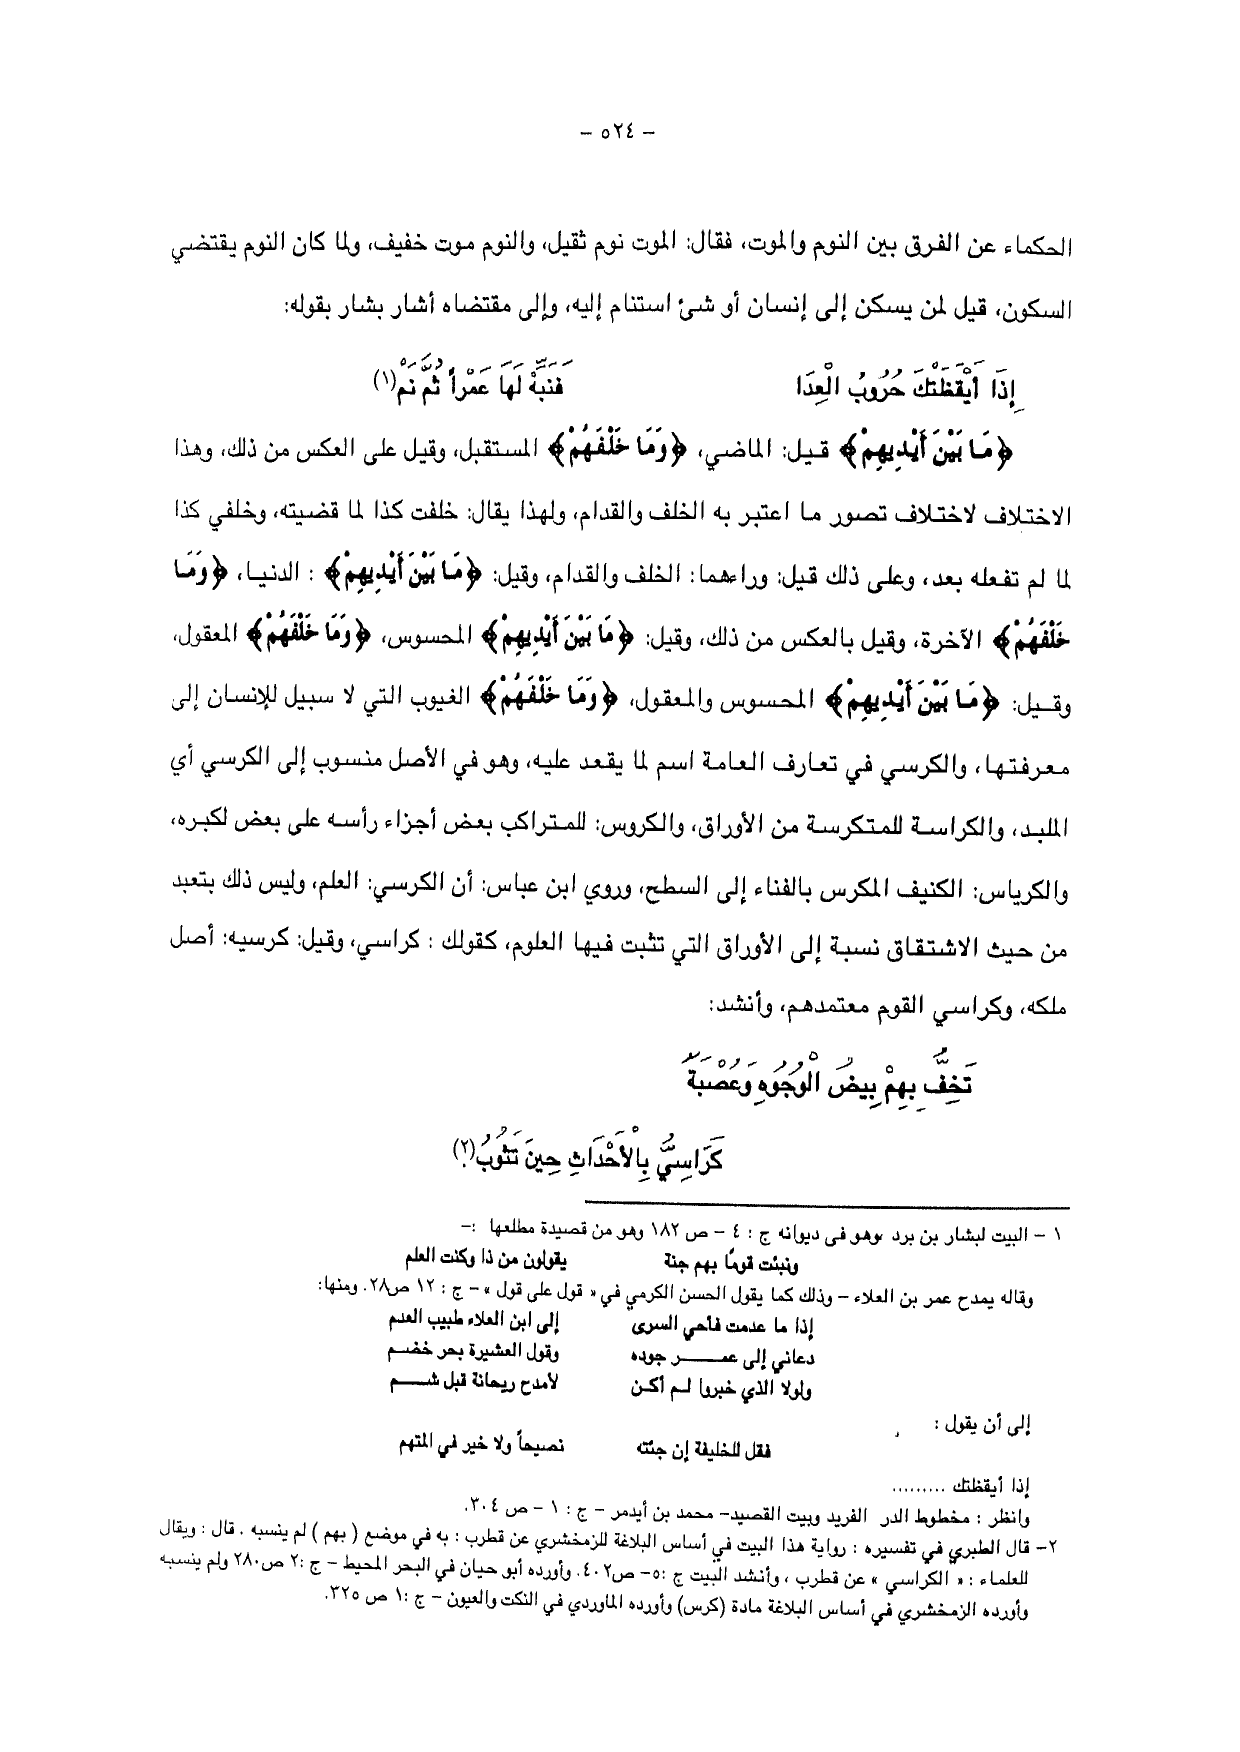 – ٥٢٤ –
الحكماء عن الفرق بين النوم والموت، فقال: الموت نوم ثقيل، والنوم موت خفيف، ولما كان النوم يقتضي
السكون، قيل لمن يسكن إلى إنسان أو شئ استنام إليه، وإلى مقتضاه أشار بشار بقوله:
إِذَا أَيْقَظَتْكَ حُرُوبُ الْعِدَا فَنَبِّهْ لَهَا عَمْراً ثُمَّ نَمْ(١)
﴿مَا بَيْنَ أَيْدِيهِمْ﴾ قيل: الماضي، ﴿وَمَا خَلْفَهُمْ﴾ المستقبل، وقيل على العكس من ذلك، وهذا
الاختلاف لاختلاف تصور ما اعتبر به الخلف والقدام، ولهذا يقال: خلفت كذا لما قضيته، وخلفي كذا
لما لم تفعله بعد، وعلى ذلك قيل: وراءهما: الخلف والقدام، وقيل: ﴿مَا بَيْنَ أَيْدِيهِمْ﴾ : الدنيا، ﴿وَمَا
خَلْفَهُمْ﴾ الآخرة، وقيل بالعكس من ذلك، وقيل: ﴿مَا بَيْنَ أَيْدِيهِمْ﴾ المحسوس، ﴿وَمَا خَلْفَهُمْ﴾ المعقول،
وقيل: ﴿مَا بَيْنَ أَيْدِيهِمْ﴾ المحسوس والمعقول، ﴿وَمَا خَلْفَهُمْ﴾ الغيوب التي لا سبيل للإنسان إلى
معرفتها، والكرسي في تعارف العامة اسم لما يقعد عليه، وهو في الأصل منسوب إلى الكرسي أي
الملبد، والكراسة للمتكرسة من الأوراق، والكروس: للمتراكب بعض أجزاء رأسه على بعض لكبره،
والكرياس: الكنيف المكرس بالفناء إلى السطح، وروي ابن عباس: أن الكرسي: العلم، وليس ذلك بتعبد
من حيث الاشتقاق نسبة إلى الأوراق التي تثبت فيها العلوم، كقولك : كراسي، وقيل: كرسيه: أصل
ملكه، وكراسي القوم معتمدهم، وأنشد:
تَخِفُّ بِهِمْ بِيضُ الْوُجُوهِ وَعُصْبَةٌ
كَرَاسِيُّ بِالْأَحْدَاثِ حِينَ تَنُوبُ(٢).
١ – البيت لبشار بن برد وهو فى ديوانه ج : ٤ – ص ١٨٢ وهو من قصيدة مطلعها :–
ونبئت قومًا بهم جنة يقولون من ذا وكنت العلم
وقاله يمدح عمر بن العلاء – وذلك كما يقول الحسن الكرمي في « قول على قول » – ج : ١٢ ص٢٨. ومنها:
إذا ما عدمت فلحي السرى إلى ابن العلاء طبيب العدم
دعاني إلى عمـــر جوده وقول العشيرة بحر خضـم
ولولا الذي خبروا لـم أكـن لأمدح ريحانة قبل شـــم
إلى أن يقول :
فقل للخليفة إن جئته نصيحاً ولا خير في المتهم
إذا أيقظتك .........
وانظر : مخطوط الدر الفريد وبيت القصيد– محمد بن أيدمر – ج : ١ – ص ٣٠٤.
٢– قال الطبري في تفسيره : رواية هذا البيت في أساس البلاغة للزمخشري عن قطرب : به في موضع ( بهم ) لم ينسبه . قال : ويقال
للعلماء : « الكراسي » عن قطرب ، وأنشد البيت ج :٥– ص٤٠٢. وأورده أبو حيان في البحر المحيط – ج :٢ ص٢٨٠ ولم ينسبه
وأورده الزمخشري في أساس البلاغة مادة (كرس) وأورده الماوردي في النكت والعيون – ج :١ ص ٣٢٥.